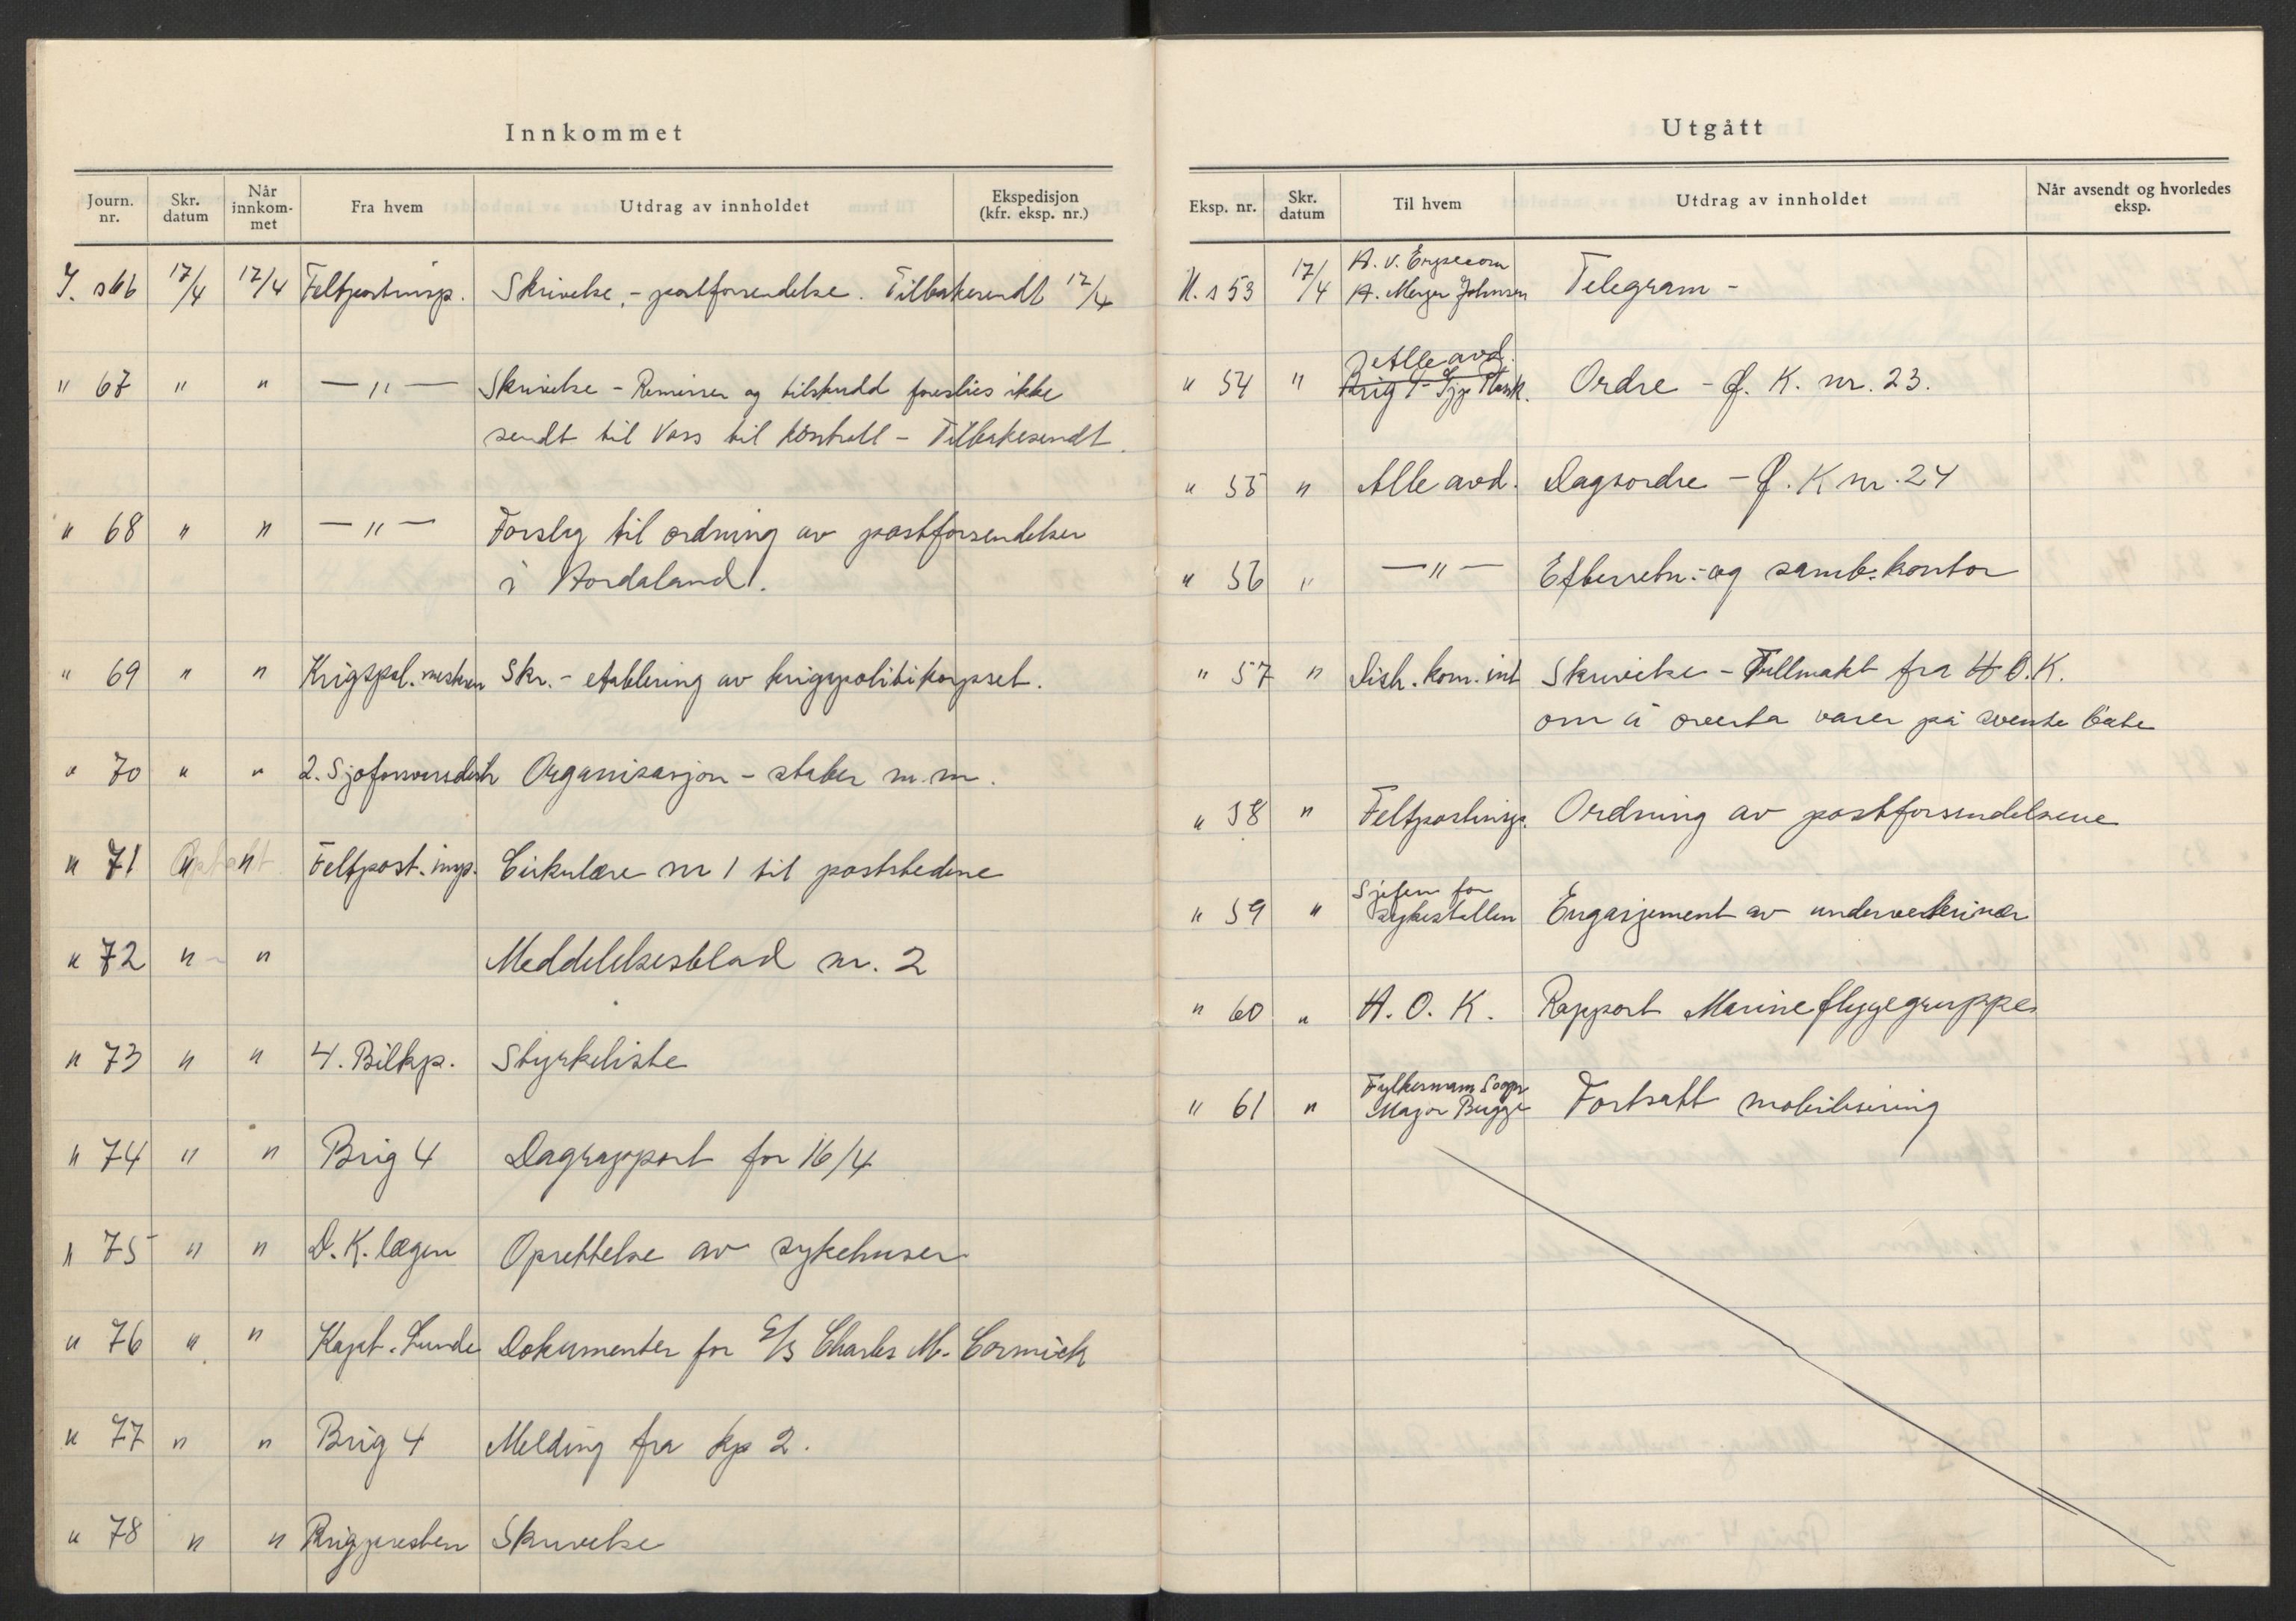 Innkommet
Journ. nr. Skr. datum Når innkom-met Fra hvem Utdrag av innholdet Ekspedisjon (kfr. eksp. nr.)
J. s 66 17/4 17/4 Feltpostinsp. Skrivelse, - postforsendelse. Tilbakesendt 17/4
" 67 " " — " — Skrivelse - Remisser og tilskudd foreslåes ikke
sendt til Voss til kontroll - Tilbakesendt.
" 68 " " — " — Forslag til ordning av postforsendelser
i Hordaland.
" 69 " " Krigspol. mesteren Skr. - etablering av krigspolitikorpset.
" 70 " " 2. Sjøforsvarsdistr Organisasjon - staber m.m.
" 71 " " Feltpost. insp. Cirkulære nr 1 til poststedene
" 72 " " Meddelelsesblad nr. 2
" 73 " " 4. Bilkp. Styrkeliste
" 74 " " Brig 4 Dagrapport for 16/4
" 75 " " D.K. lægen Oprettelse av sykehuser
" 76 " " Kapt. Lunde Dokumenter for S/S Charles M. Cormick
" 77 " " Brig 4 Melding fra kp 2.
" 78 " " Krigspresten Skrivelse
Utgått
Eksp. nr. Skr. datum Til hvem Utdrag av innholdet Når avsendt og hvorledes eksp.
U. s 53 17/4 A. v.
A. Meyer Johnsen Telegram -
Alle avd.
" 54 " Brig 4 - Ordre - Ø. K. nr. 23.
" 55 " Alle avd. Dagsordre - Ø. K nr. 24
" 56 " — " — Efterretn.- og samb. kontor
" 57 " Distr. kom. int Skrivelse - Fullmakt fra H.O.K.
om å overta varer på svenske båte
" 58 " Feltpostinsp. Ordning av postforsendelsene
" 59 " Sjefen for
sykestallen Engasjement av underveterinær
" 60 " H.O.K. Rapport Marineflyvegruppe
" 61 " Fylkesmann Sogn
Major Bugge Fortsatt mobilisering